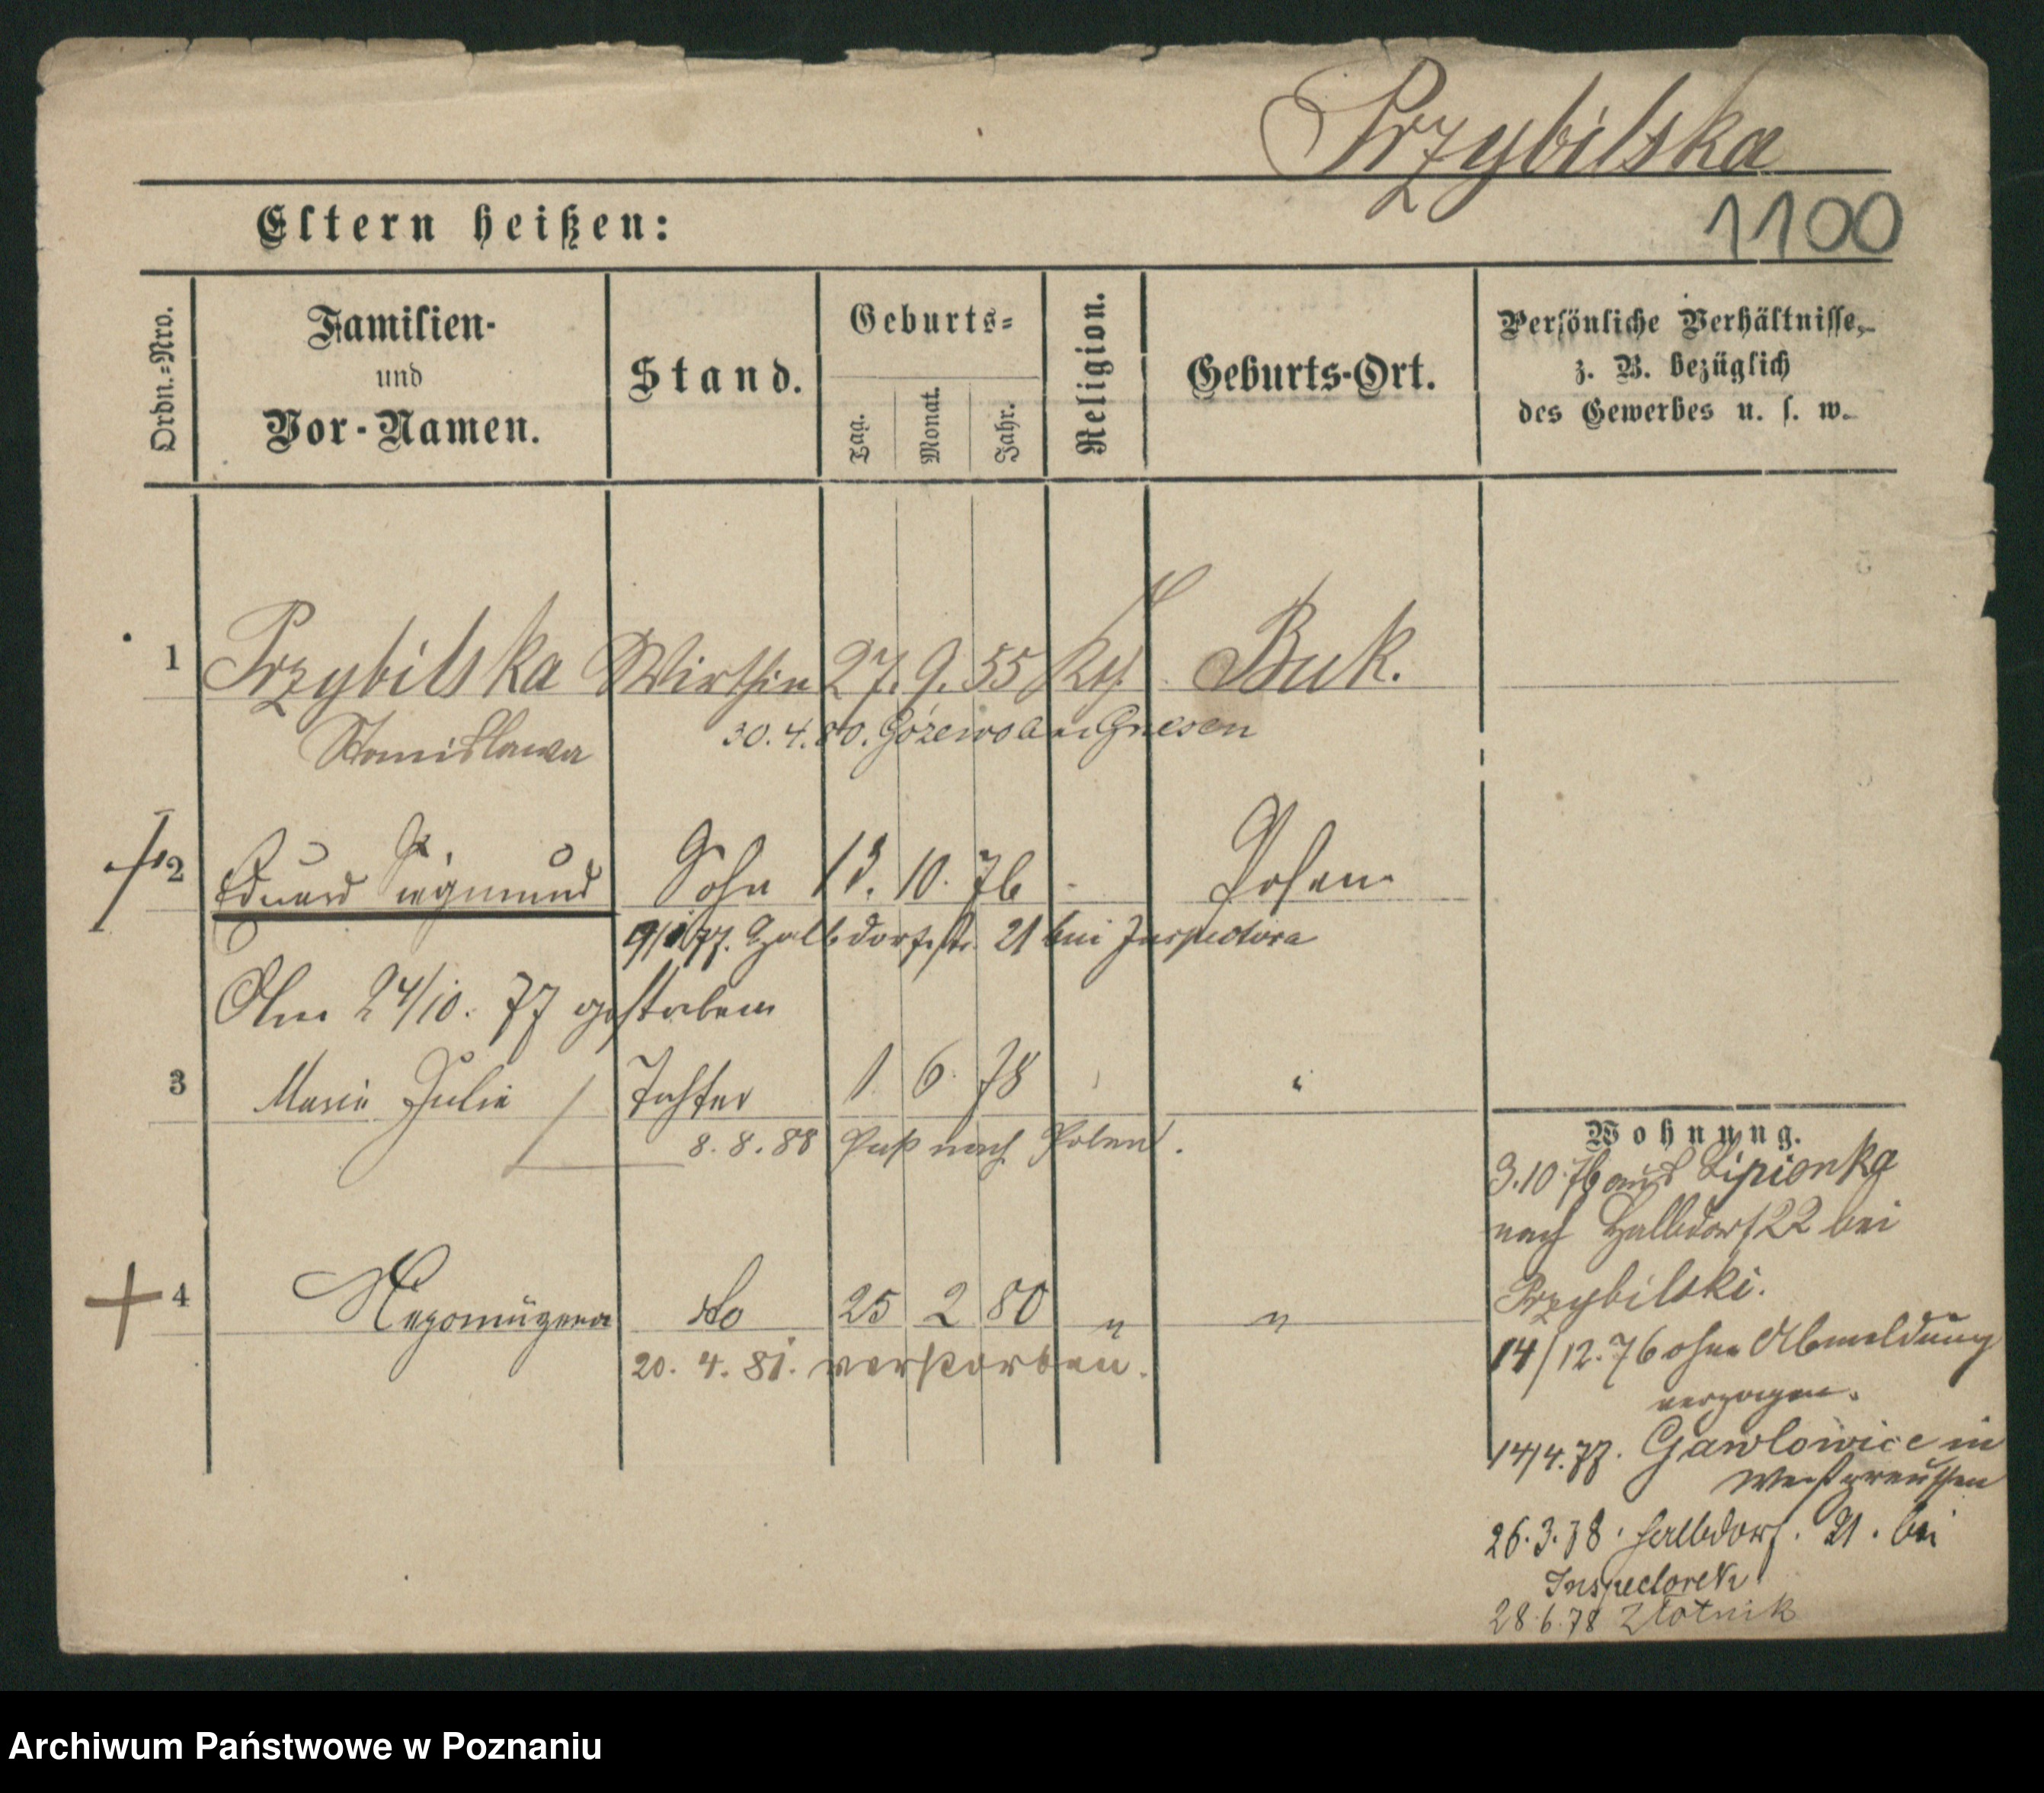 Przybilska
1100
Eltern heißen:
Ordn.=Nro.
Familien-
und
Vor-Namen.
Stand.
Geburts=
Tag.
Monat.
Jahr.
Religion.
Geburts-Ort.
Persönliche Verhältnisse,
z. B. bezüglich
des Gewerbes u. s. w.
1 Przybilska Wirthin 27. 9. 55 Kth. Buk.
Stanislawa 30. 4. 80. bei Gnesen
2 Eduard Siegmund Sohn 13. 10. 76 Posen
77. Halbdorfstr. 21 bei
Am 24/10. 77 gestorben
3 Marie Julie Tochter 1 6 78 "
8. 8. 88 Paß nach Polen.
4 do 25 2 80 " "
20. 4. 81. verstorben.
Wohnung.
3.10.76 aus Lipionka
nach Halbdorf 22 bei
Przybilski.
14/12.76 ohne Abmeldung
verzogen.
14/4.77. Gawlowice in
Westpreussen
26.3.78. Halbdorf. 21. bei
28.6.78 Zlotnik
Archiwum Państwowe w Poznaniu